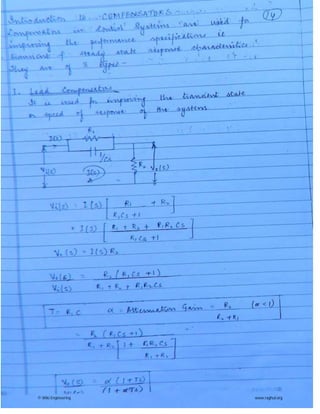 Introduction to COMPENSATORS -
14
Compensators in Control Systems are used for
improving the performance specifications ie
transient & steady state response characteristics.
They are of 3 types -
1. Lead Compensator
It is used for improving the transient state
or speed of response of the system
I(s)
R1
1/Cs
Vi(s)
I(s)
R2
V0(s)
Vi(s) = I(s) [ R1 / (R1Cs + 1) + R2 ]
= I(s) [ (R1 + R2 + R1R2Cs) / (R1Cs + 1) ]
V0(s) = I(s) R2
V0(s) / Vi(s) = R2 (R1Cs + 1) / (R1 + R2 + R1R2Cs)
T = R1C α = Attenuation Gain = R2 / (R2 + R1) (α < 1)
= R2 (R1Cs + 1) / ( R1 + R2 [ 1 + R1R2Cs / (R1 + R2) ] )
V0(s) / = α (1 + Ts) / (1 + αTs)
Engineering
www.raghul.org